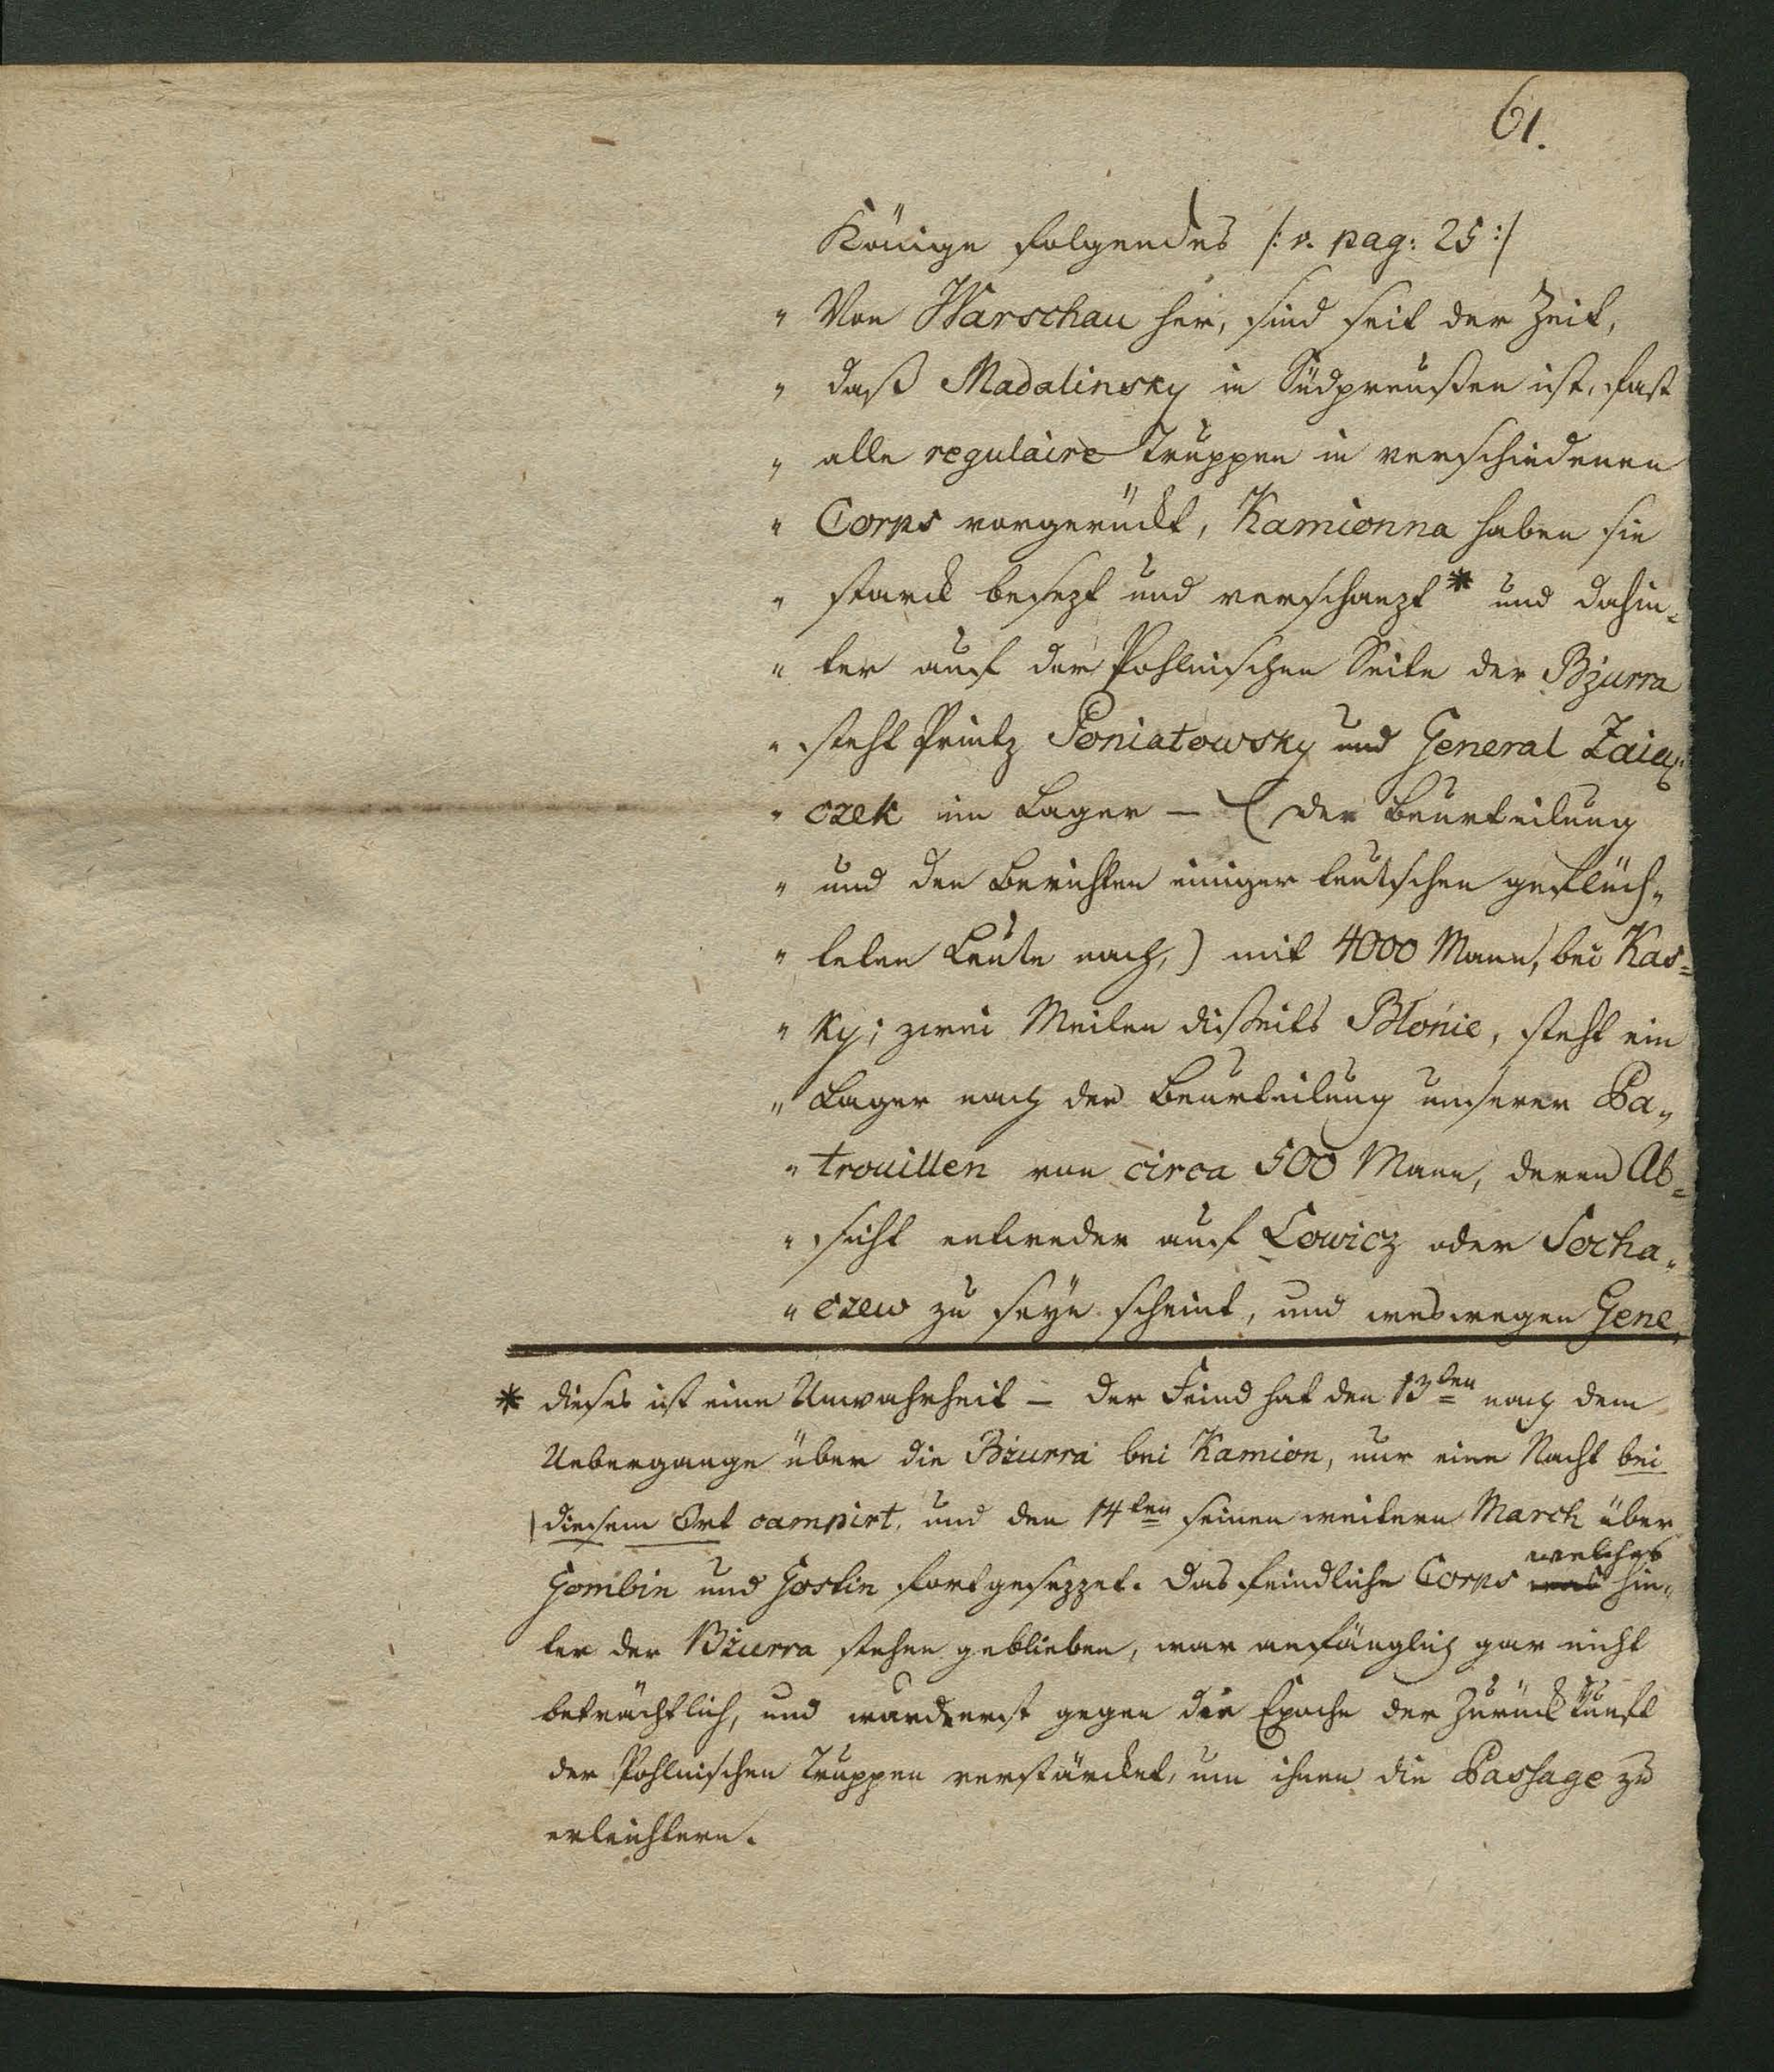 61.
Könige folgendes /: v. pag: 25 :/
" Von Warschau her, sind seit der Zeit,
" daß Madalinsky in Südpreußen ist, fast
" alle regulaire Truppen in verschiedenen
" Corps vorgerückt, Kamionna haben sie
" starck besezt und verschanzt * und dahin=
" ter auf der Pohlnischen Seite der Bzurra
" steht Printz Poniatowsky und General Zaią=
" czek im Lager – (der Beurteilung
" und den Berichten einiger teutschen geflüch„
" teten Leute nach,) mit 4000 Mann, bei Kas=
" ky; zwei Meilen disseits Blonie, steht ein
" Lager nach der Beurteilung unserer Pa„
" trouillen von circa 500 Mann, deren Ab=
" sicht entweder auf Lowicz oder Socha„
" czew zu seyn scheint, und weswegen Gene„
* dieses ist eine Unwahrheit – der Feind hat den 13ten nach dem
Uebergange über die Bzurra bei Kamion, nur eine Nacht bei
diesem Ort campirt, und den 14ten seinen weitern March über
welches
Gombin und Gostin fortgesezzet. Das feindliche Corps was hin„
ter der Bzurra stehen geblieben, war anfänglich gar nicht
beträchtlich, und wurde erst gegen die Epoche der Zurückkunft
der Pohlnischen Truppen verstärcket, um ihnen die Passage zu
erleichtern.